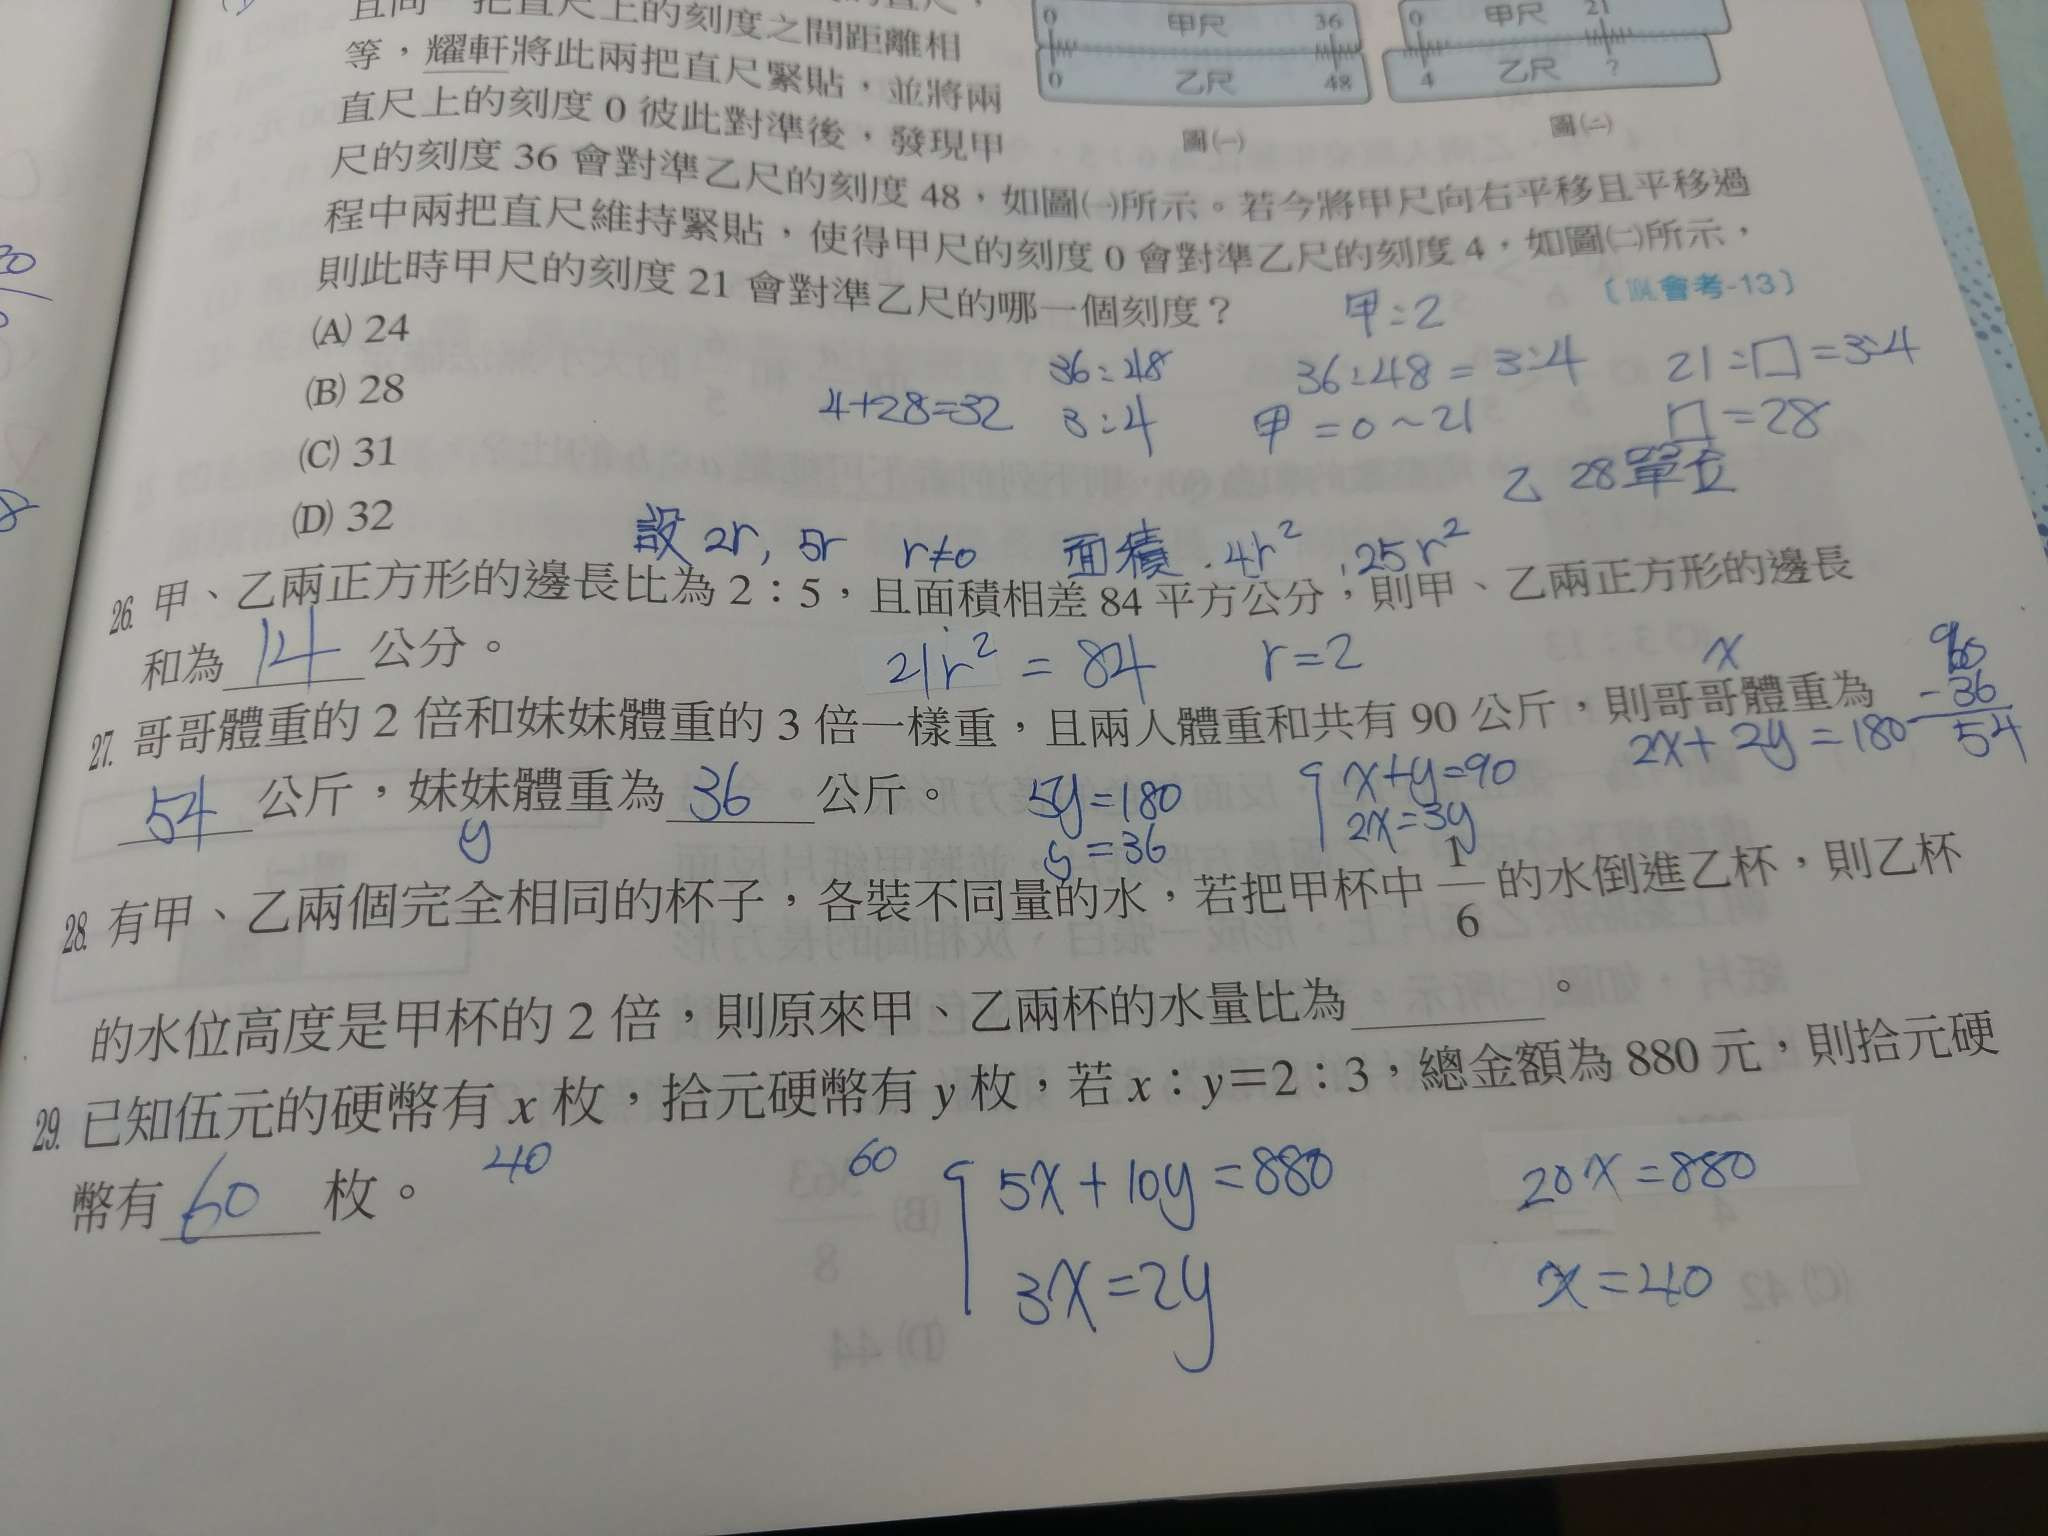 且同一把直尺上的刻度之間距離相
等，耀軒將此兩把直尺緊貼，並將兩
直尺上的刻度 0 彼此對準後，發現甲
尺的刻度 36 會對準乙尺的刻度 48，如圖㈠所示。若今將甲尺向右平移且平移過
程中兩把直尺維持緊貼，使得甲尺的刻度 0 會對準乙尺的刻度 4，如圖㈡所示，
則此時甲尺的刻度 21 會對準乙尺的哪一個刻度？
會考-13〕
0 甲尺 36
0 乙尺 48
圖㈠
0 甲尺 21
4 乙尺 ?
圖㈡
(A) 24
(B) 28
(C) 31
(D) 32
甲:2
36:48
3:4
4+28=32
36:48=3:4
甲=0~21
21:□=3:4
□=28
乙 28單位
設 2r, 5r r≠0 面積 4r², 25r²
26. 甲、乙兩正方形的邊長比為 2：5，且面積相差 84 平方公分，則甲、乙兩正方形的邊長
和為 14 公分。
21r²=84 r=2
27. 哥哥體重的 2 倍和妹妹體重的 3 倍一樣重，且兩人體重和共有 90 公斤，則哥哥體重為
54 公斤，妹妹體重為 36 公斤。
x
y
5y=180
y=36
x+y=90
2x=3y
2x+2y=180
-36
54
28. 有甲、乙兩個完全相同的杯子，各裝不同量的水，若把甲杯中 1/6 的水倒進乙杯，則乙杯
的水位高度是甲杯的 2 倍，則原來甲、乙兩杯的水量比為＿＿＿。
29. 已知伍元的硬幣有 x 枚，拾元硬幣有 y 枚，若 x：y＝2：3，總金額為 880 元，則拾元硬
幣有 60 枚。
40
60
5x+10y=880
3x=2y
20x=880
x=40